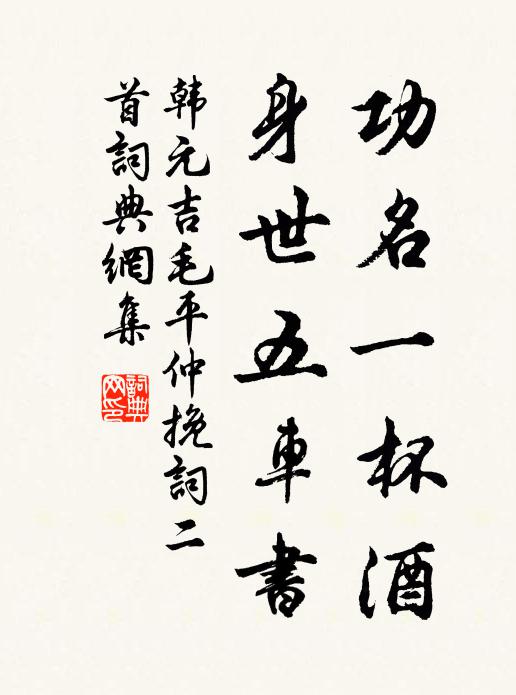 功名一杯酒
身世五車書
韩元吉毛平仲挽詞二
首詞典網集
詞典网印